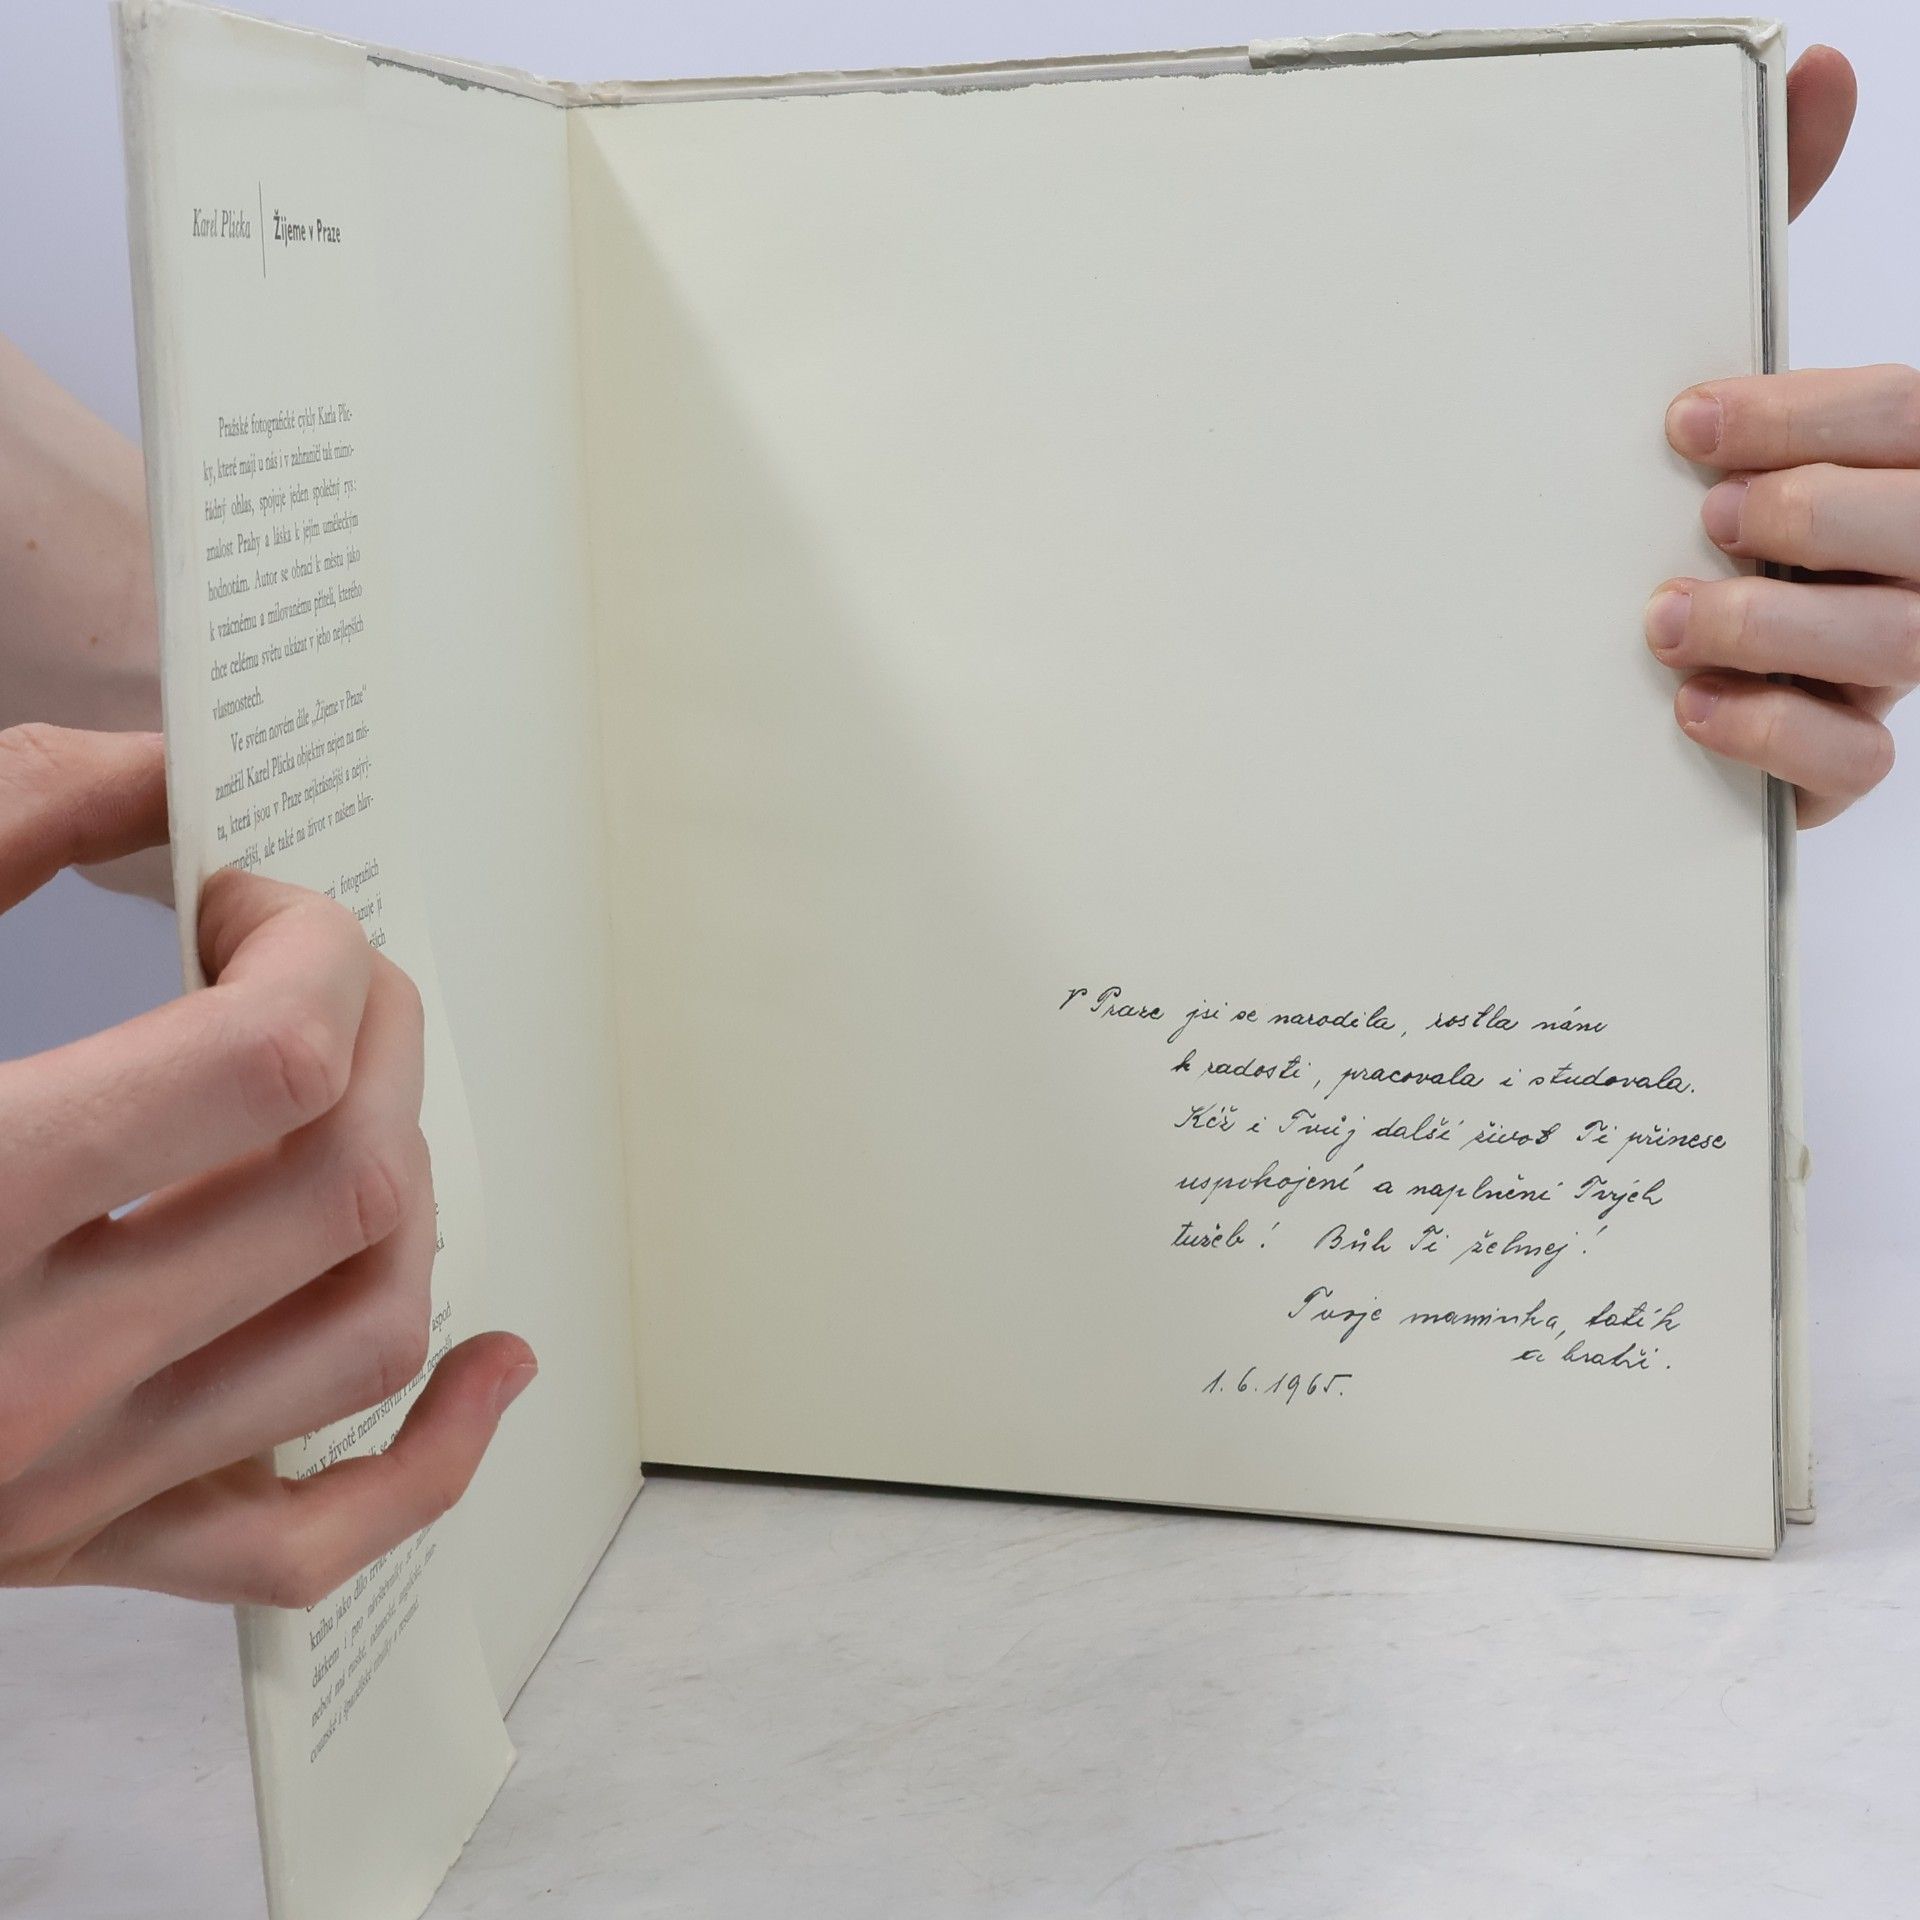 Karel Plicka
Žijeme v Praze
Pražské fotografické cykly Karla Plic-
ky, které mají u nás i v zahraničí tak mimo-
řádný ohlas, spojuje jeden společný rys:
znalost Prahy a láska k jejím uměleckým
hodnotám. Autor se obrací k městu jako
k vzácnému a milovanému příteli, kterého
chce celému světu ukázat v jeho nejlepších
vlastnostech.
Ve svém novém díle „Žijeme v Praze“
zaměřil Karel Plicka objektiv nejen na mís-
ta, která jsou v Praze nejkrásnější a nejvý-
ale také na život v našem hlav-
fotografiích
v životě nenavštívili
knihu jako dílo
dárkem i pro návštěvníky ze
neboť má ruské, německé, anglické,
a španělské titulky a resumé.
V Praze jsi se narodila, rostla nám
k radosti, pracovala i studovala.
Kéž i Tvůj další život Ti přinese
uspokojení a naplnění Tvých
tužeb! Bůh Ti žehnej!
Tvoje maminka, tatík
a bratři.
1.6.1965.